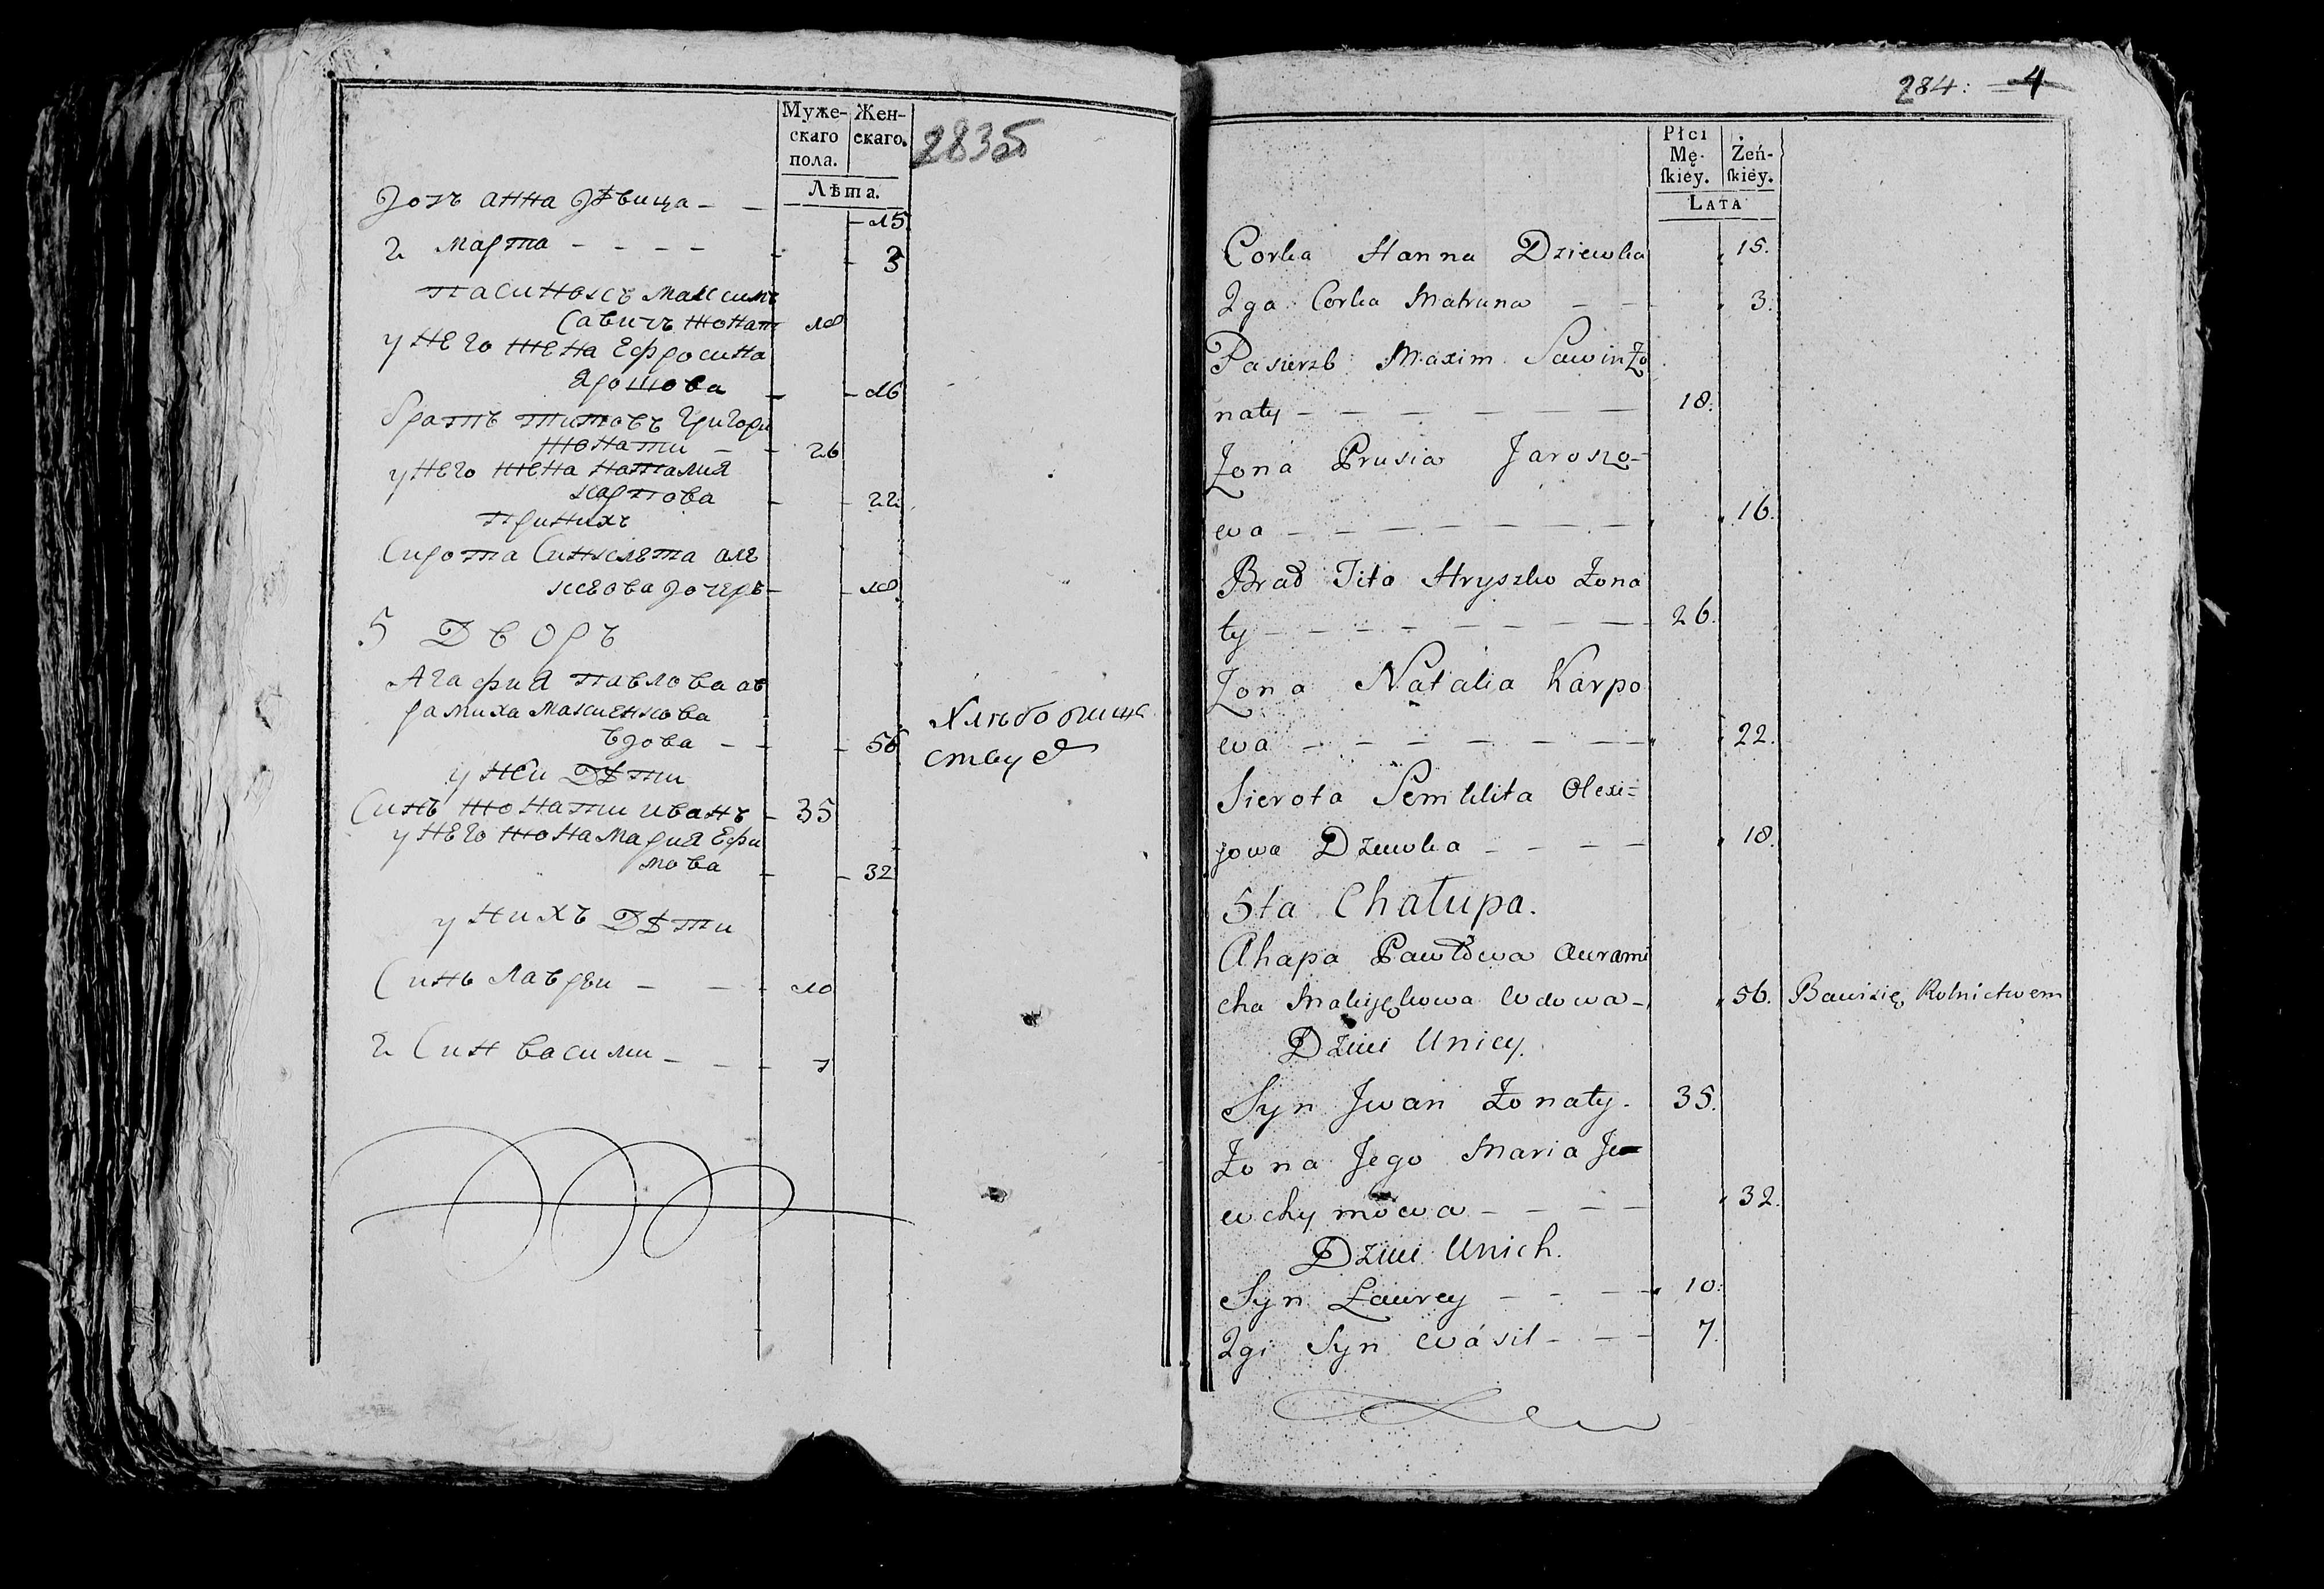 Муже-
скаго
пола.
Жен-
скаго.
Лѣта.
283об
Дочь анна дѣвица - - 15
2 марта - - - - 3
пасинокъ максимъ
Савичъ жонат 18
у него жена Ефросина
Ярошова - 16
братъ титовъ григори
жонати - - 26
у него жена наталия
карпова - 22
при нихъ
Сирота Синклѣта але
ксѣова дочеръ - 18
5 Дворъ
Агафия павлова ав
рамиха макиенкова
вдова - - 56
Хлѣбопаше
ствуе
у неи Дѣти
Синъ жонати иванъ - 35
у него жона мария Ефи
мова - 32
у нихъ Дѣти
Синъ лаврѣи - - - 10
2 Син васили - - - 7
284: 4
Płci
Mę-
ſkiey.
Żeń-
ſkiey.
LATA
Corka Hanna Dziewka 15.
2ga Corka Matruna - - 3.
Pasierzb Maxim Sawin Żo
naty - - - - - - 18.
Żona Prusia Jaroszo-
wa - - - - - - 16.
Brad Tita Hryszko Żona
ty - - - - - - - 26.
Żona Natalia Karpo
wa - - - - - - 22.
Sierota Semklita Olexi=
jowa Dziewka - - - - 18.
5ta Chałupa.
Ahapa Pawłowa Awrami
cha Makijękowa Wdowa - 56. Bawi się Rolnictwem
Dzieci Unicy.
Syn Jwan Żonaty. 35.
Żona Jego Maria Je=
wchymowa - - - - 32.
Dzieci Unich.
Syn Ławrey - - - - 10.
2gi Syn Wasil - - - 7.